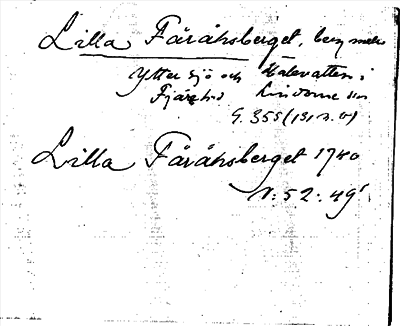 Lilla Fåråhsberget, berg mell.
Yttersjö och Hålevatten i
Fjärås o Lindome sn
G. 355 (
Lilla Fåråhsberget 1780
N: 52: 49